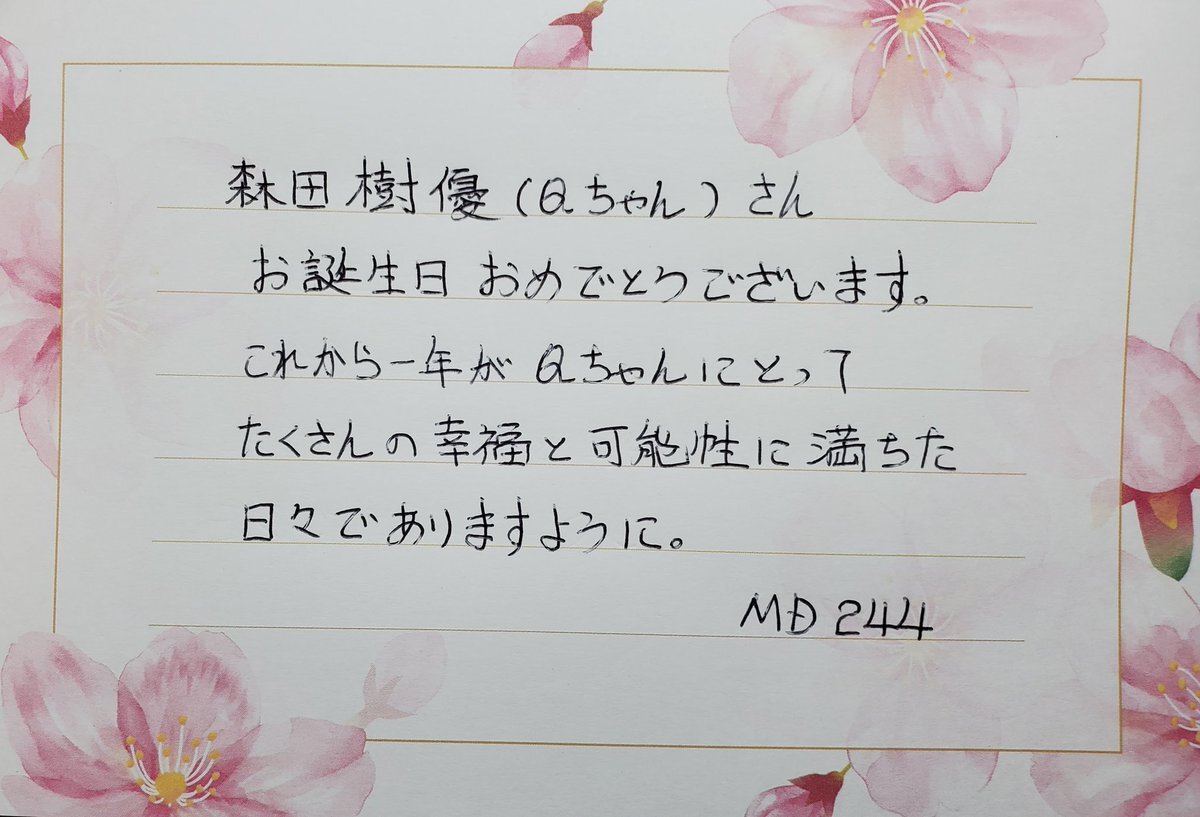 森田樹優（Qちゃん）さん
お誕生日 おめでとうございます。
これから一年が Qちゃんにとって
たくさんの幸福と可能性に満ちた
日々でありますように。
MD 244